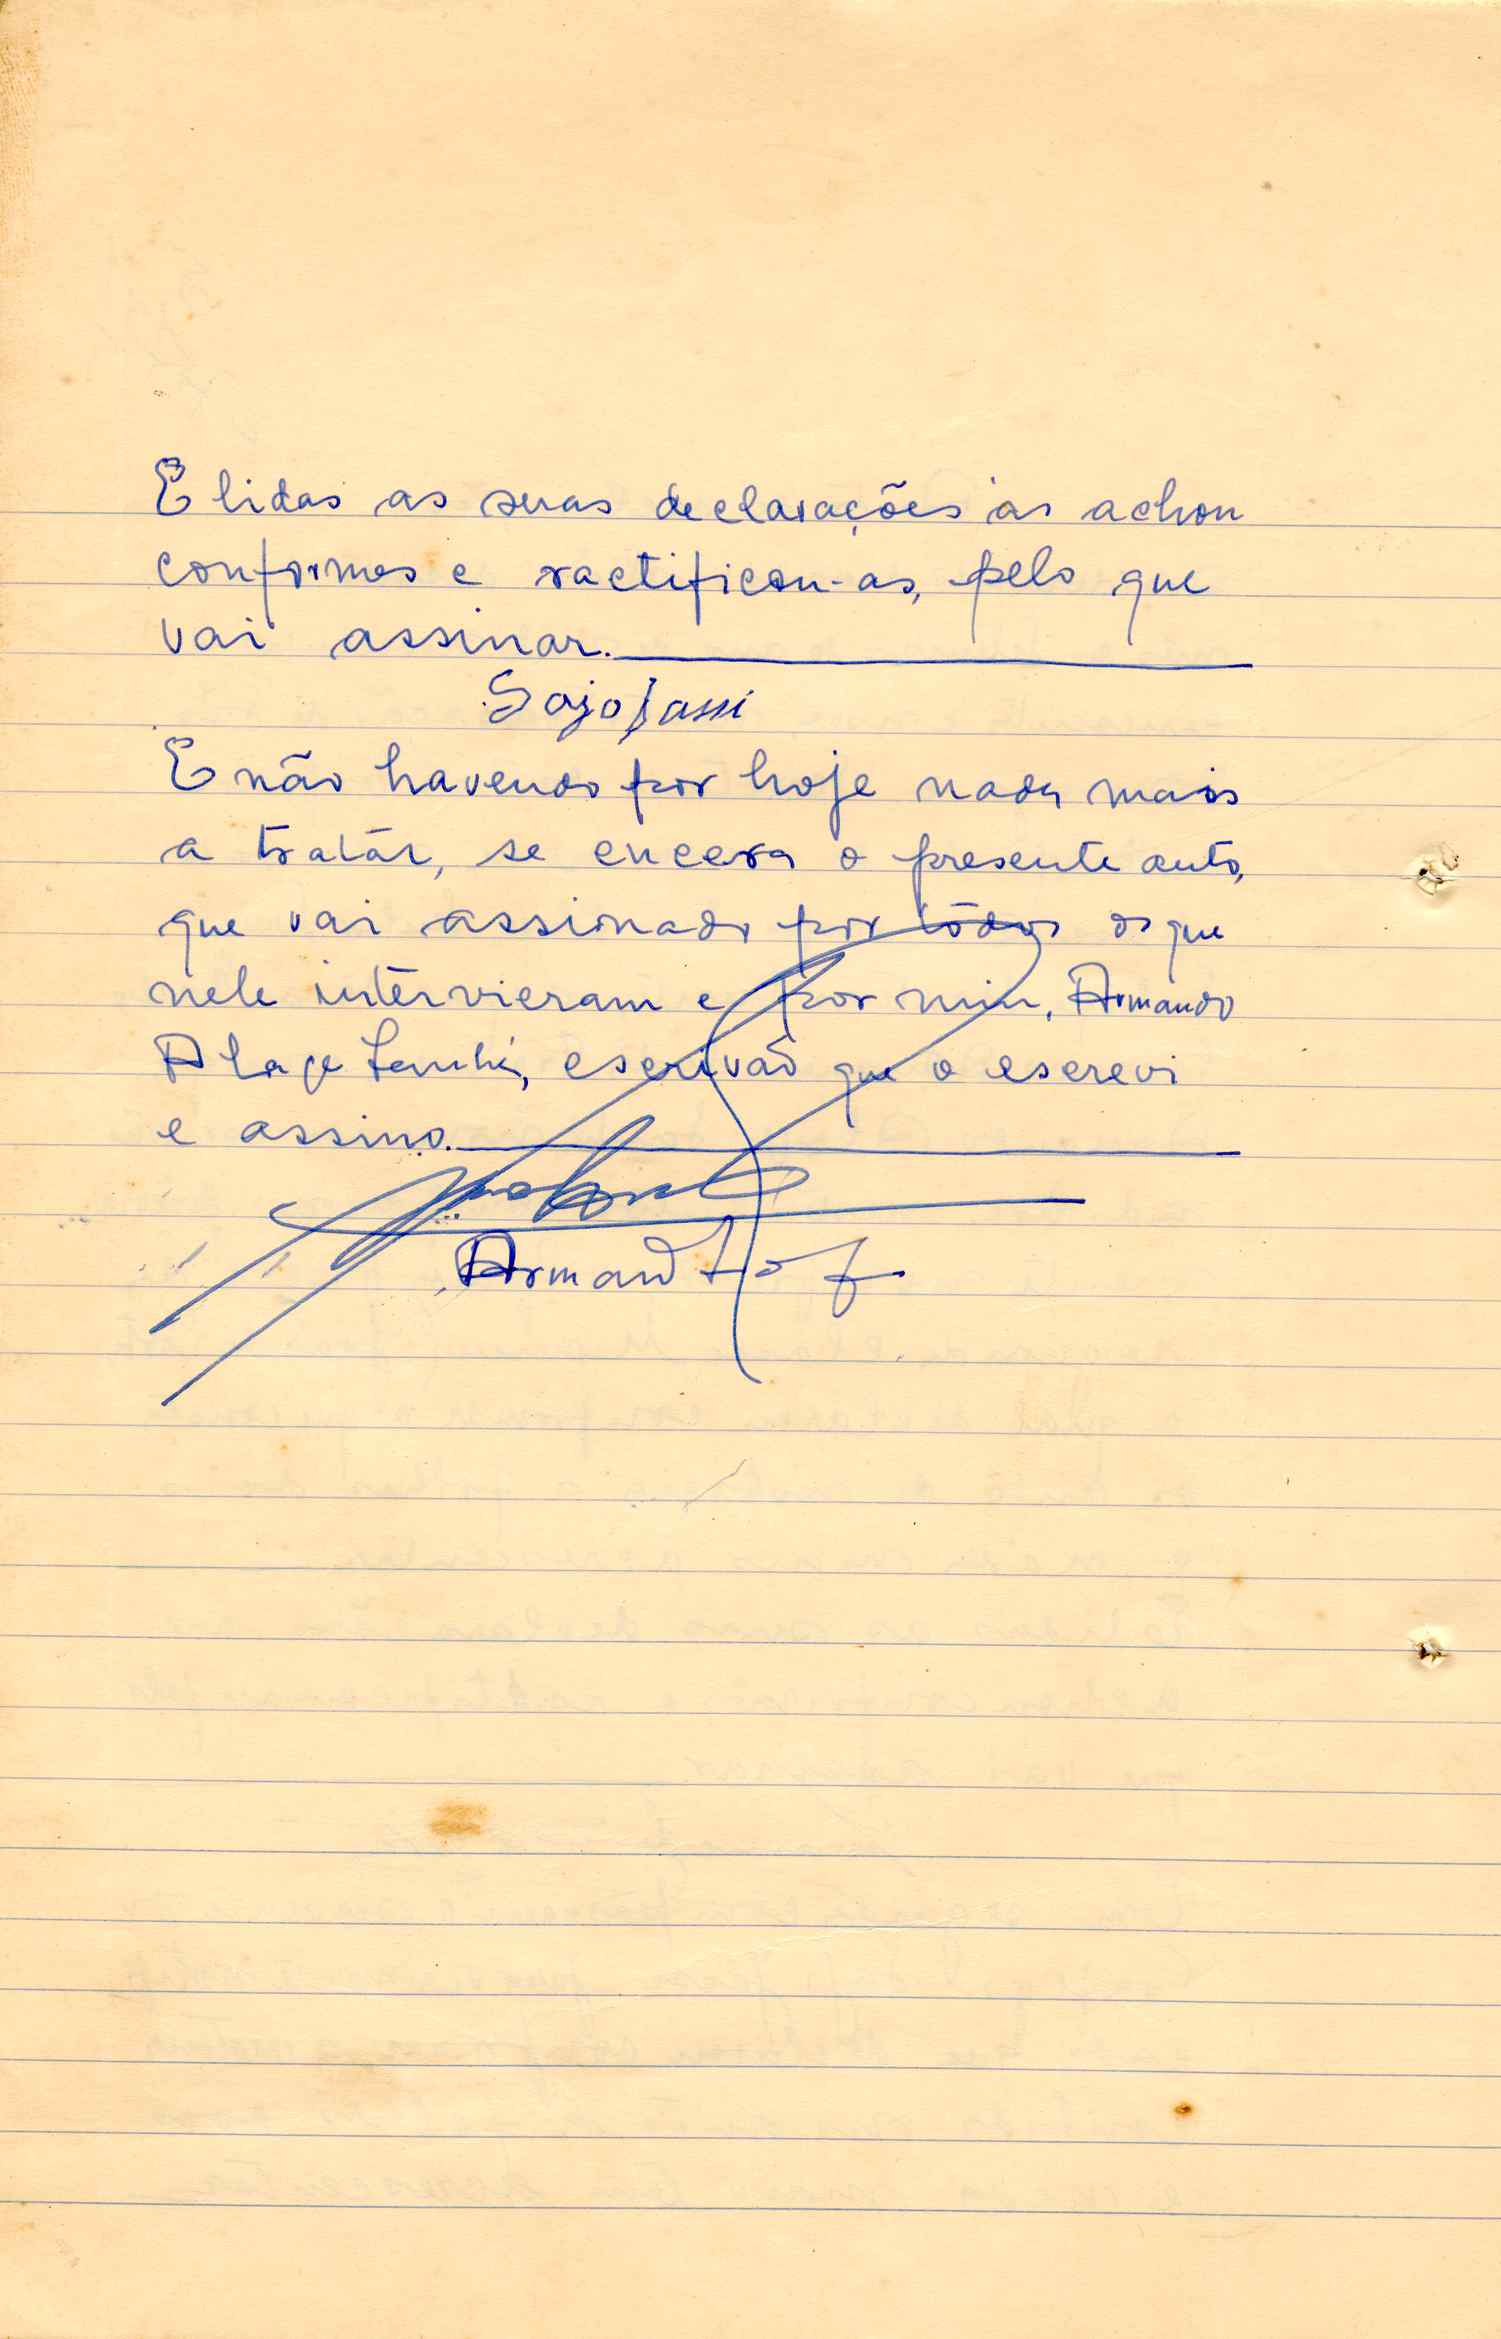 E lidas as suas declarações as achou
conformes e ractificou-as, pelo que
vai assinar.
Sajo Jassi
E não havendo por hoje nada mais
a tratár, se encerra o presente auto,
que vai assinado por todos os que
nele intervieram e por mim, Armando
escrivão que o escrevi
e assino.
Armando